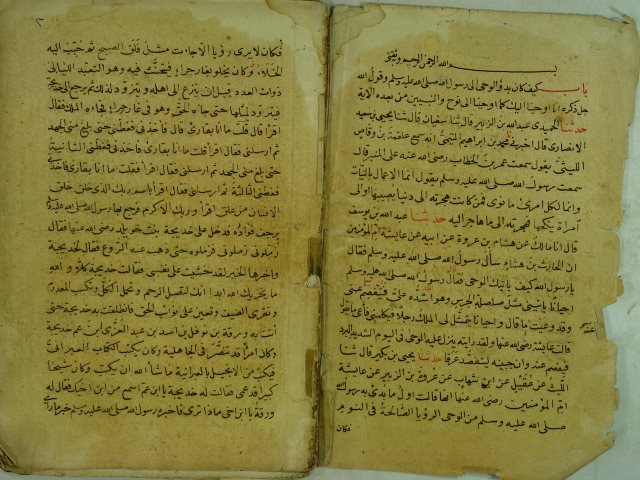 بسم الله الرحمن الرحيم وبه ثقتي
باب كيف كان بدؤ الوحي الى رسول الله صلى الله عليه وسلم وقول الله
جل ذكره انا اوحينا اليك كما اوحينا الى نوح والنبيين من بعده الاية
حدثنا الحميدي عبد الله بن الزبير قال ثنا سفيان قال ثنا يحيى بن سعيد
الانصاري قال اخبرني محمد بن ابراهيم التيمي انه سمع علقمة بن وقاص
الليثي يقول سمعت عمر بن الخطاب رضي الله عنه على المنبر قال
سمعت رسول الله صلى الله عليه وسلم يقول انما الاعمال بالنيات
وانما لكل امرئ ما نوى فمن كانت هجرته الى دنيا يصيبها او الى
امراة ينكحها فهجرته الى ما هاجر اليه حدثنا عبد الله بن يوسف
قال انا مالك عن هشام بن عروة عن ابيه عن عايشة ام المؤمنين
ان الحارث بن هشام سأل رسول الله صلى الله عليه وسلم فقال
يا رسول الله كيف ياتيك الوحي فقال رسول الله صلى الله عليه وسلم
احيانا ياتيني مثل صلصلة الجرس وهو اشده علي فيفصم عني
وقد وعيت ما قال واحيانا يتمثل لي الملك رجلا فيكلمني فاعي ما يقول
قالت عايشة رضي الله عنها ولقد رايته ينزل عليه الوحي في اليوم الشديد البرد
فيفصم عنه وان جبينه ليتفصد عرقا حدثنا يحيى بن بكير قال ثنا
الليث عن عقيل عن ابن شهاب عن عروة بن الزبير عن عايشة
ام المؤمنين رضي الله عنها انها قالت اول ما بدئ به رسول الله
صلى الله عليه وسلم من الوحي الرؤيا الصالحة في النوم
فكان
٢
فكان لا يرى رؤيا الا جاءت مثل فلق الصبح ثم حبب اليه
الخلاء وكان يخلو بغار حراء فيتحنث فيه وهو التعبد الليالي
ذوات العدد قبل ان ينزع الى اهله ويتزود لذلك ثم يرجع الى خديجة
فيتزود لمثلها حتى جاءه الحق وهو في غار حراء فجاءه الملك فقال
اقرا قال قلت ما انا بقارئ قال فاخذني فغطني حتى بلغ مني الجهد
ثم ارسلني فقال اقرا قلت ما انا بقارئ قال فاخذني فغطني الثانية
حتى بلغ مني الجهد ثم ارسلني فقال اقرا فقلت ما انا بقارئ فاخذني
فغطني الثالثة ثم ارسلني فقال اقرا باسم ربك الذي خلق خلق
الانسان من علق اقرا وربك الاكرم فرجع بها رسول الله صلى الله عليه وسلم
يرجف فؤاده فدخل على خديجة بنت خويلد رضي الله عنها فقال
زملوني زملوني فزملوه حتى ذهب عنه الروع فقال لخديجة
واخبرها الخبر لقد خشيت على نفسي فقالت خديجة كلا والله
ما يخزيك الله ابدا انك لتصل الرحم وتحمل الكل وتكسب المعدوم
وتقري الضيف وتعين على نوائب الحق فانطلقت به خديجة حتى
اتت به ورقة بن نوفل بن اسد بن عبد العزى ابن عم خديجة
وكان امرأ قد تنصر في الجاهلية وكان يكتب الكتاب العبراني
فيكتب من الانجيل بالعبرانية ما شاء الله ان يكتب وكان شيخا
كبيرا قد عمي فقالت له خديجة يا ابن عم اسمع من ابن اخيك فقال له
ورقة يا ابن اخي ماذا ترى فاخبره رسول الله صلى الله عليه وسلم خبر ما راى